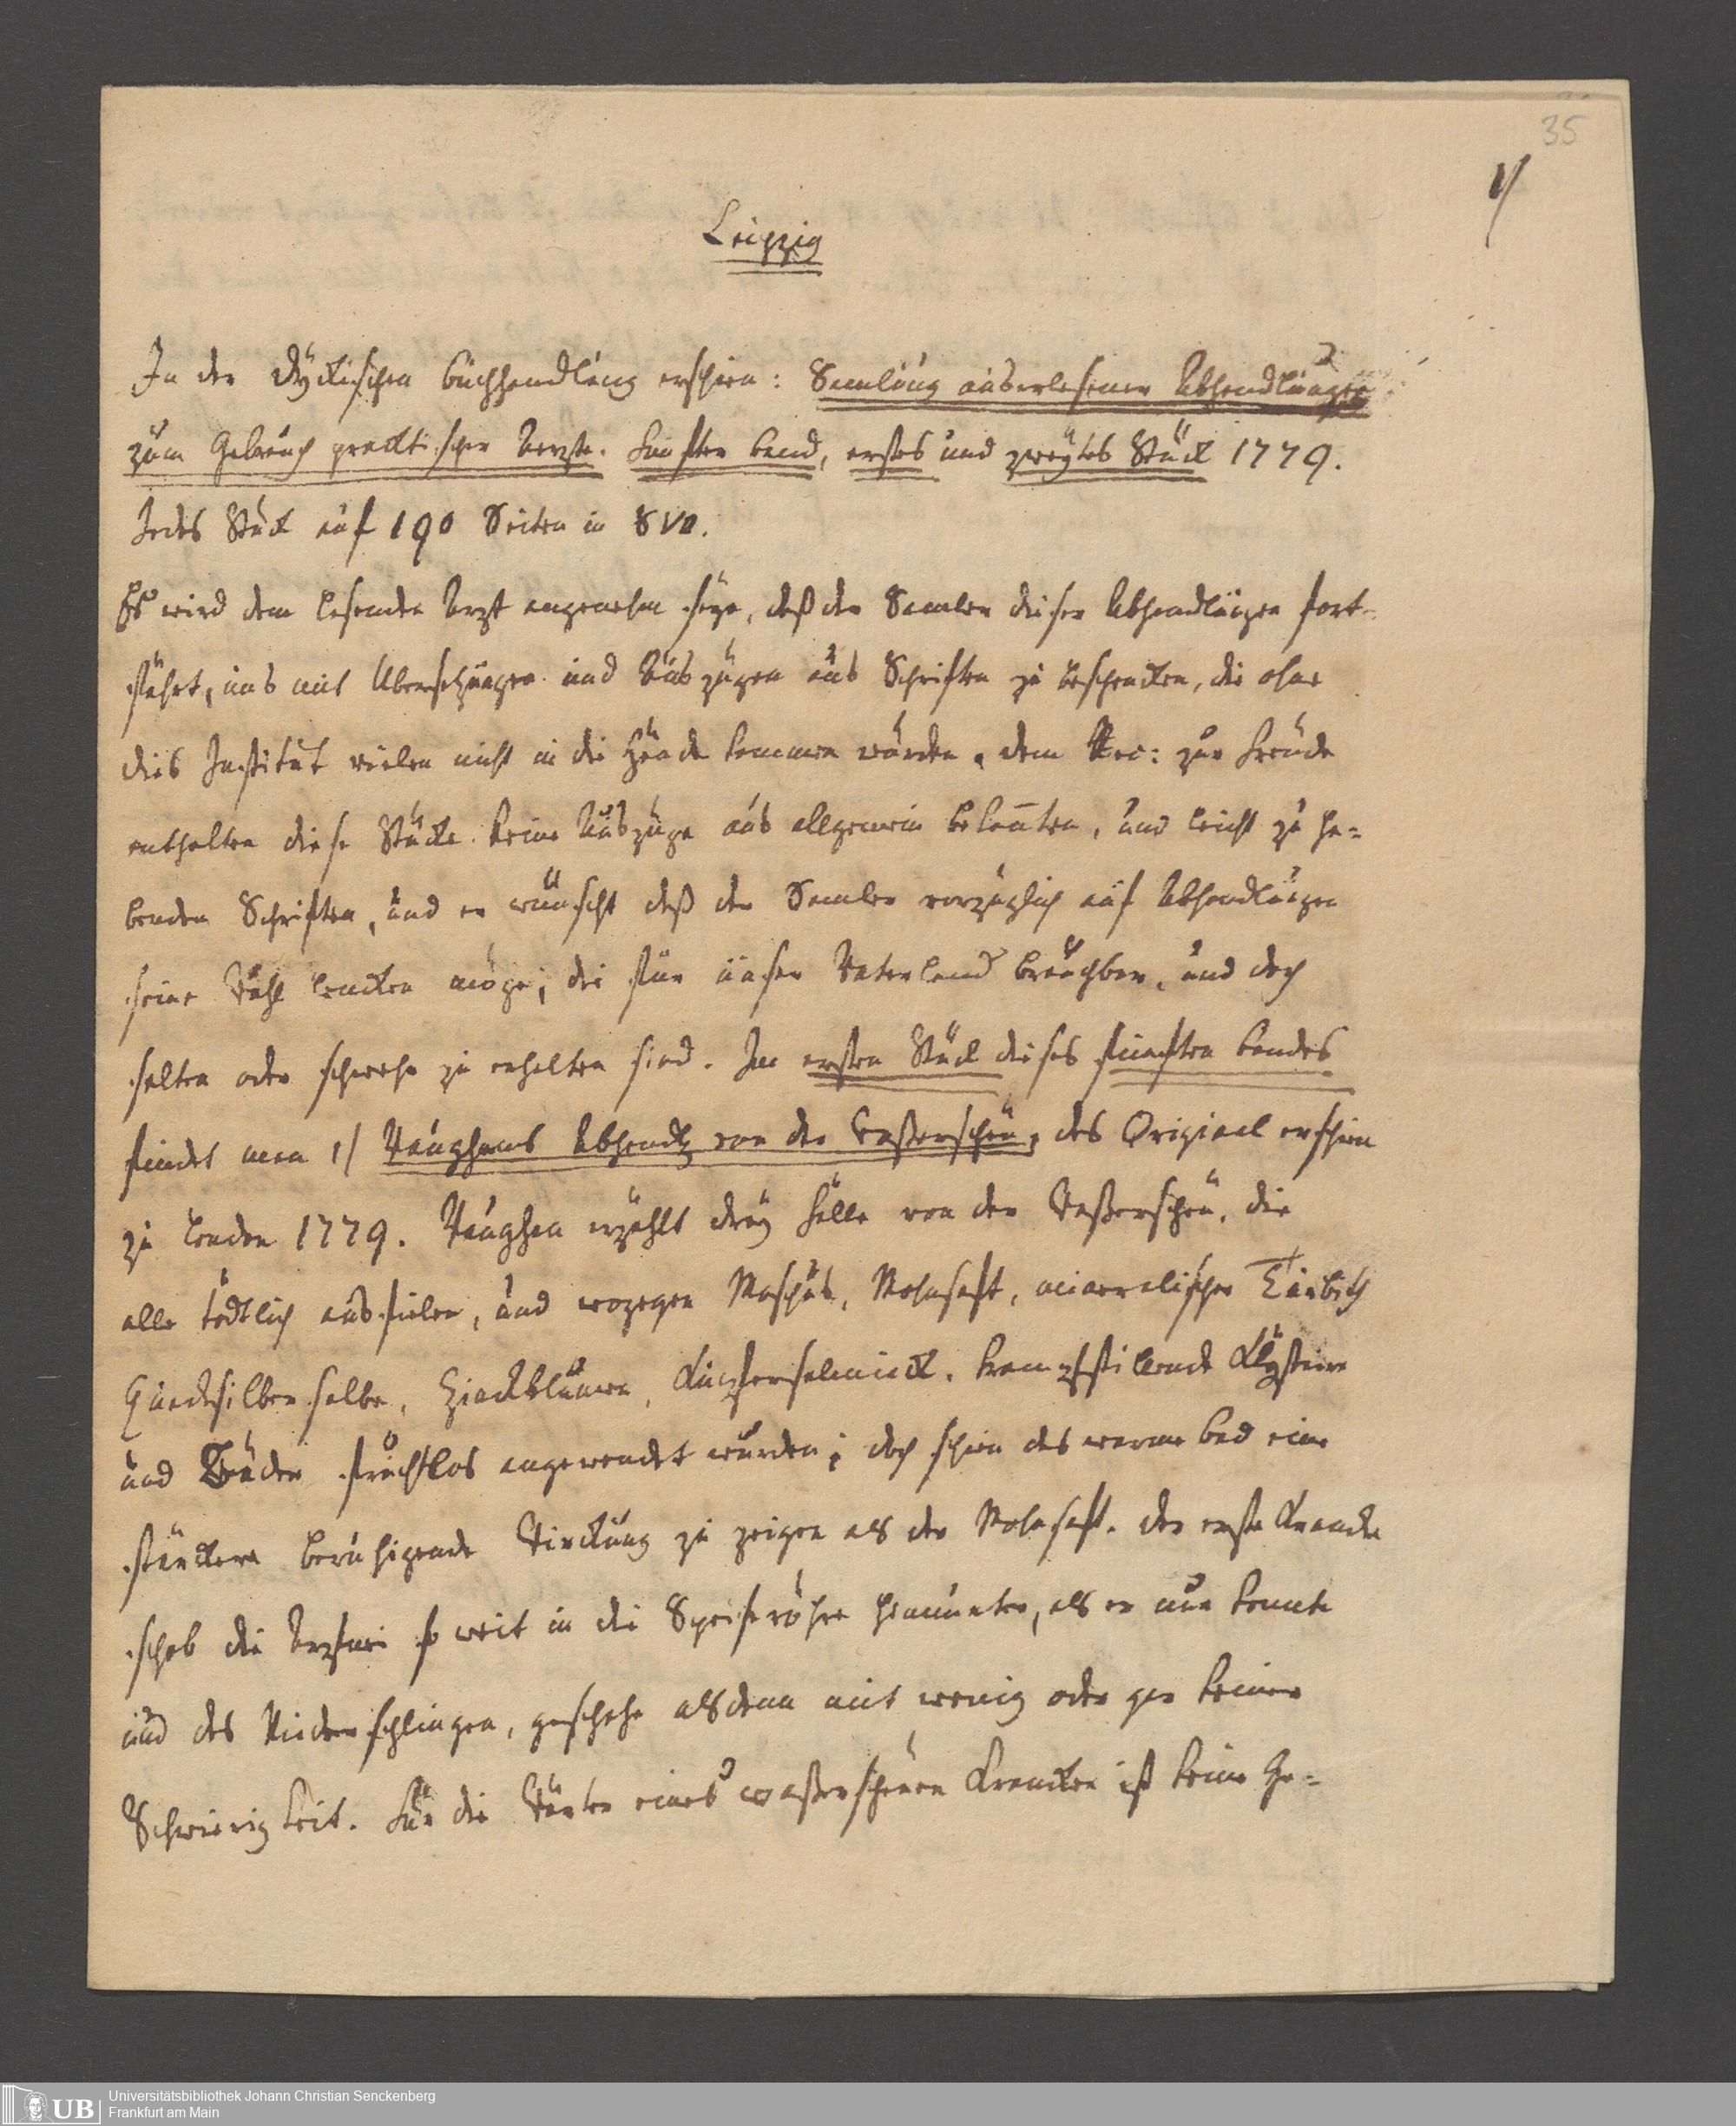 35
1/
Leipzig
In der Dyckischen Buchhandlung erschien: Samlung auserlesener Abhandlungen
zum Gebrauch practischer Aerzte. Fünfter Band, erstes und zweytes Stück 1779.
Jedes Stück auf 190 Seiten in 8vo.
Es wird dem lesenden Arzt angenehm seyn, daß der Samler dieser Abhandlungen fort-
fährt, uns mit Übersetzungen und Auszügen aus Schriften zu beschencken, die ohne
dies Institut vielen nicht in die Hände kommen würden. dem Rec: zur Freude
enthalten diese Stücke keine Auszüge aus allgemein bekannten, und leicht zu ha-
benden Schriften, und er wünscht daß der Samler vorzüglich auf Abhandlungen
seine Wahl lencken möge, die für unser Vaterland brauchbar, und doch
selten oder schwehr zu erhalten sind. Im ersten Stück dieses fünften Bandes
findet man 1/ Vaughans Abhandlg von der Waßerscheu, das Original erschien
zu London 1779. Vaughan erzählt drey Fälle von der Waßerscheu, die
alle tödtlich ausfielen, und wogegen Moschus, Mohnsaft, mineralischer Turbith
Quecksilbersalbe, Zinckblumen, Kupfersalmiack, krampfstillende Klystiere
und Bäder fruchtlos angewendet wurden; doch schien das warme Bad eine
stärckere beruhigende Wirckung zu zeigen als der Mohnsaft. der erste Krancke
schob die Arznei so weit in die Speiseröhre hinunter, als er nur konnte
und das Niederschlingen, geschahe alsdenn mit wenig oder gar keiner
Schwierigkeit. Für die Wärter eines waßerscheuen Krancken ist keine Ge-
UB
Universitätsbibliothek Johann Christian Senckenberg
Frankfurt am Main